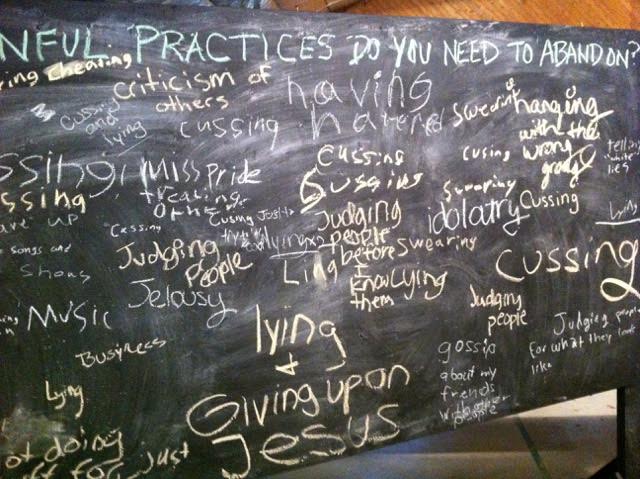 NFUL PRACTICES DO YOU NEED TO ABANDON?
ring cheating
criticism of
others
having
hatered
Swearing
hanging
with the
wrong
group
cussing
and
lying
cussing
cussing
cusing
telling
white
lies
ssing
ssing
Miss Pride
treating
others
Cussing
swearing
Cussing
lying
Judging
people
before
I
know
them
idolatry
Swearing
are up
songs and
Shows
Cussing
Judging
People
lying
Ling
lying
cussing
Jelousy
Judging
people
Music
Busyness
lying
+
Giving upon
Jesus
gossip
about my
friends
with other
people
Judging people
for what they look
like
Lying
ot doing
Just